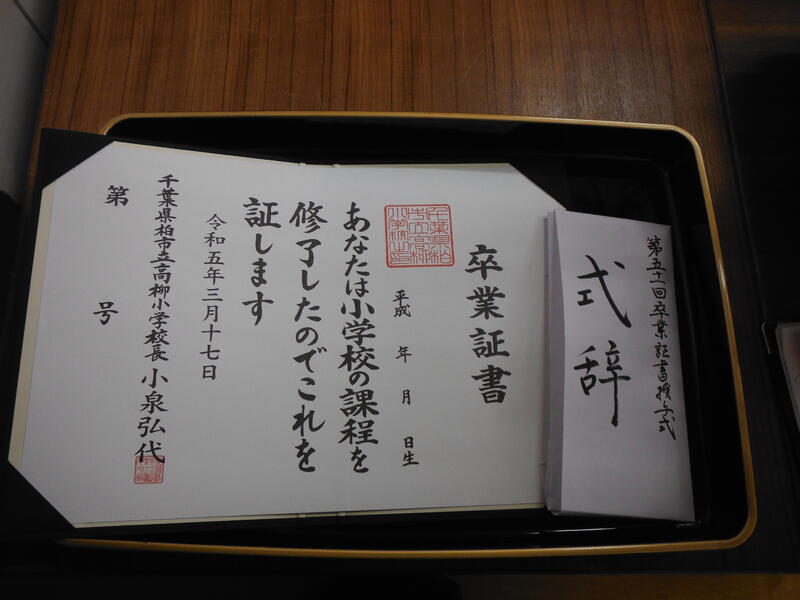 卒業証書
平成 年 月 日生
あなたは小学校の課程を
修了したのでこれを
証します
令和五年三月十七日
千葉県柏市立高柳小学校長 小泉弘代
第 号
千葉県柏
市立高柳
小学校之印
第五十一回卒業証書授与式
式辞